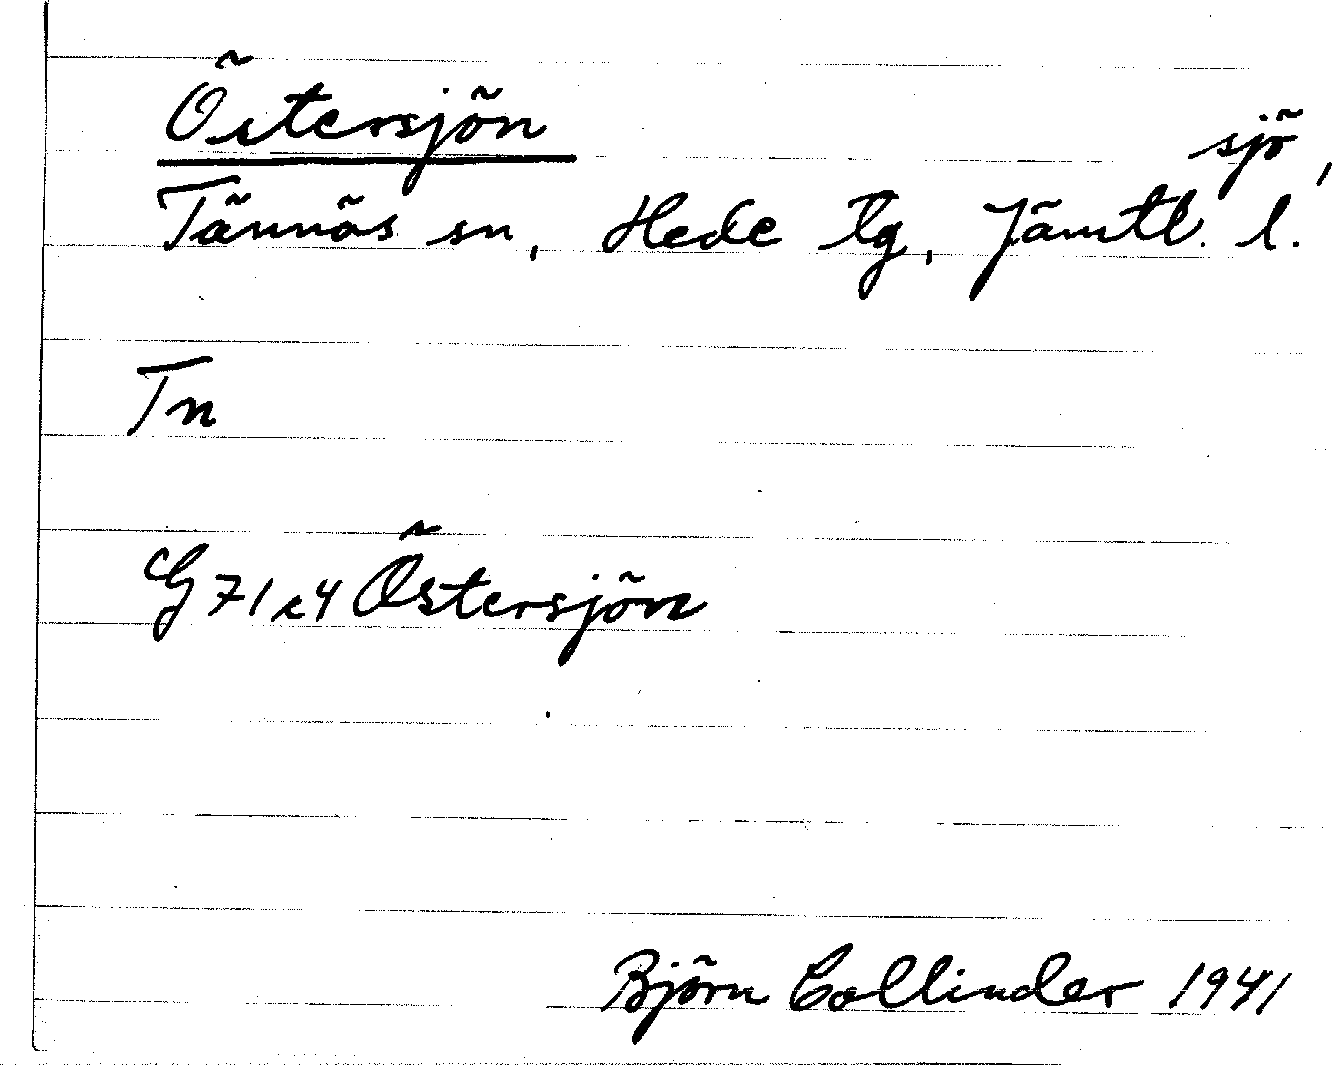 Östersjön
sjö,
Tännäs sn, Hede tg, Jämtl. l.
Tn
G 71 c4 Östersjön
Björn Collinder 1941